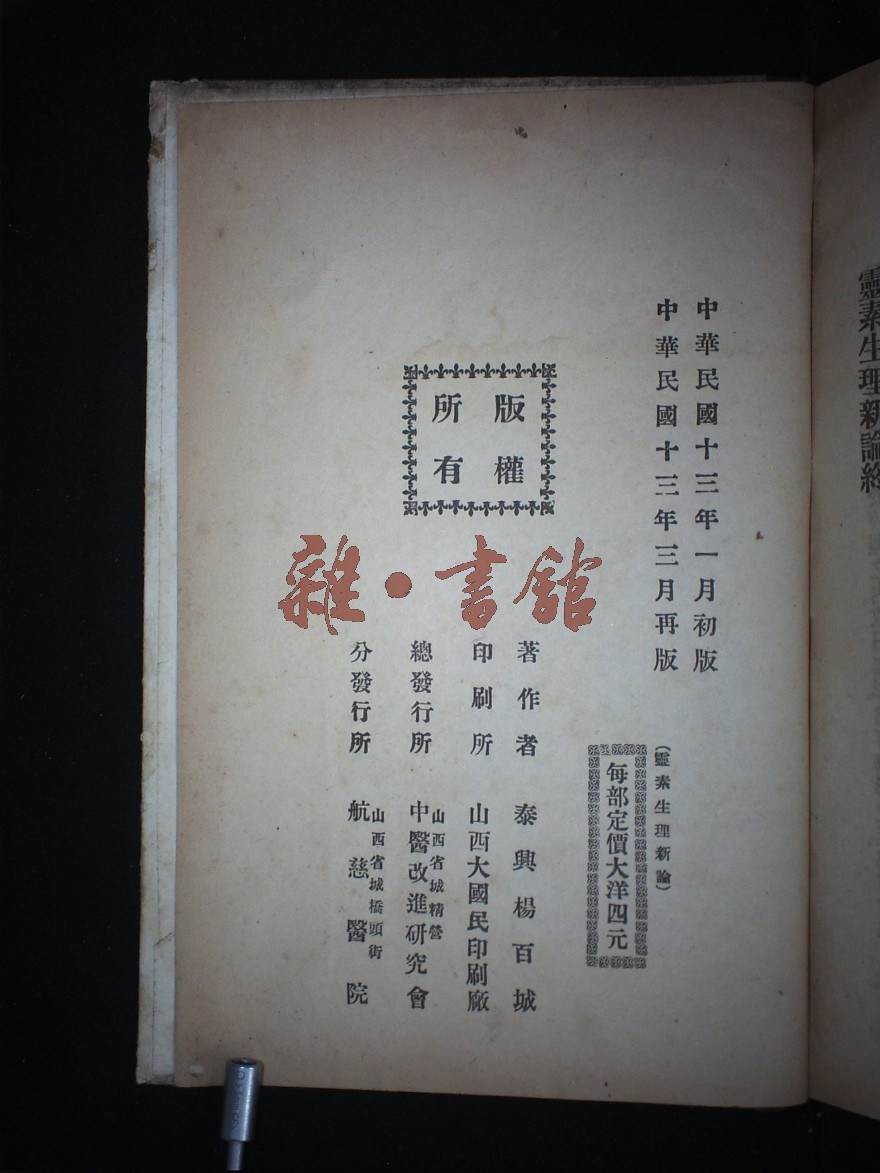 靈素生理新論終
中華民國十三年一月初版
中華民國十三年三月再版
(靈素生理新論)
每部定價大洋四元
版權
所有
雜·書館
著作者 泰興楊百城
印刷所 山西大國民印刷廠
總發行所 山西省城精營 中醫改進研究會
分發行所 山西省城橋頭街 航慈醫院